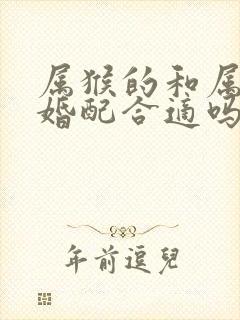 属猴的和属
婚配合适吗
年前逗兒